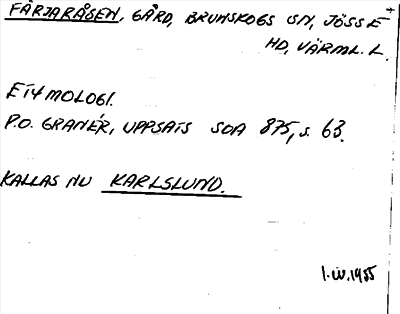 FÄRJARÅSEN, GÅRD, BRUNSKOGS SN, JÖSSE
HD, VÄRML. L.
ETYMOLOGI.
P.O. GRANÉR, UPPSATS SOA 875, s. 63.
KALLAS NU KARLSLUND.
1.IV.1955